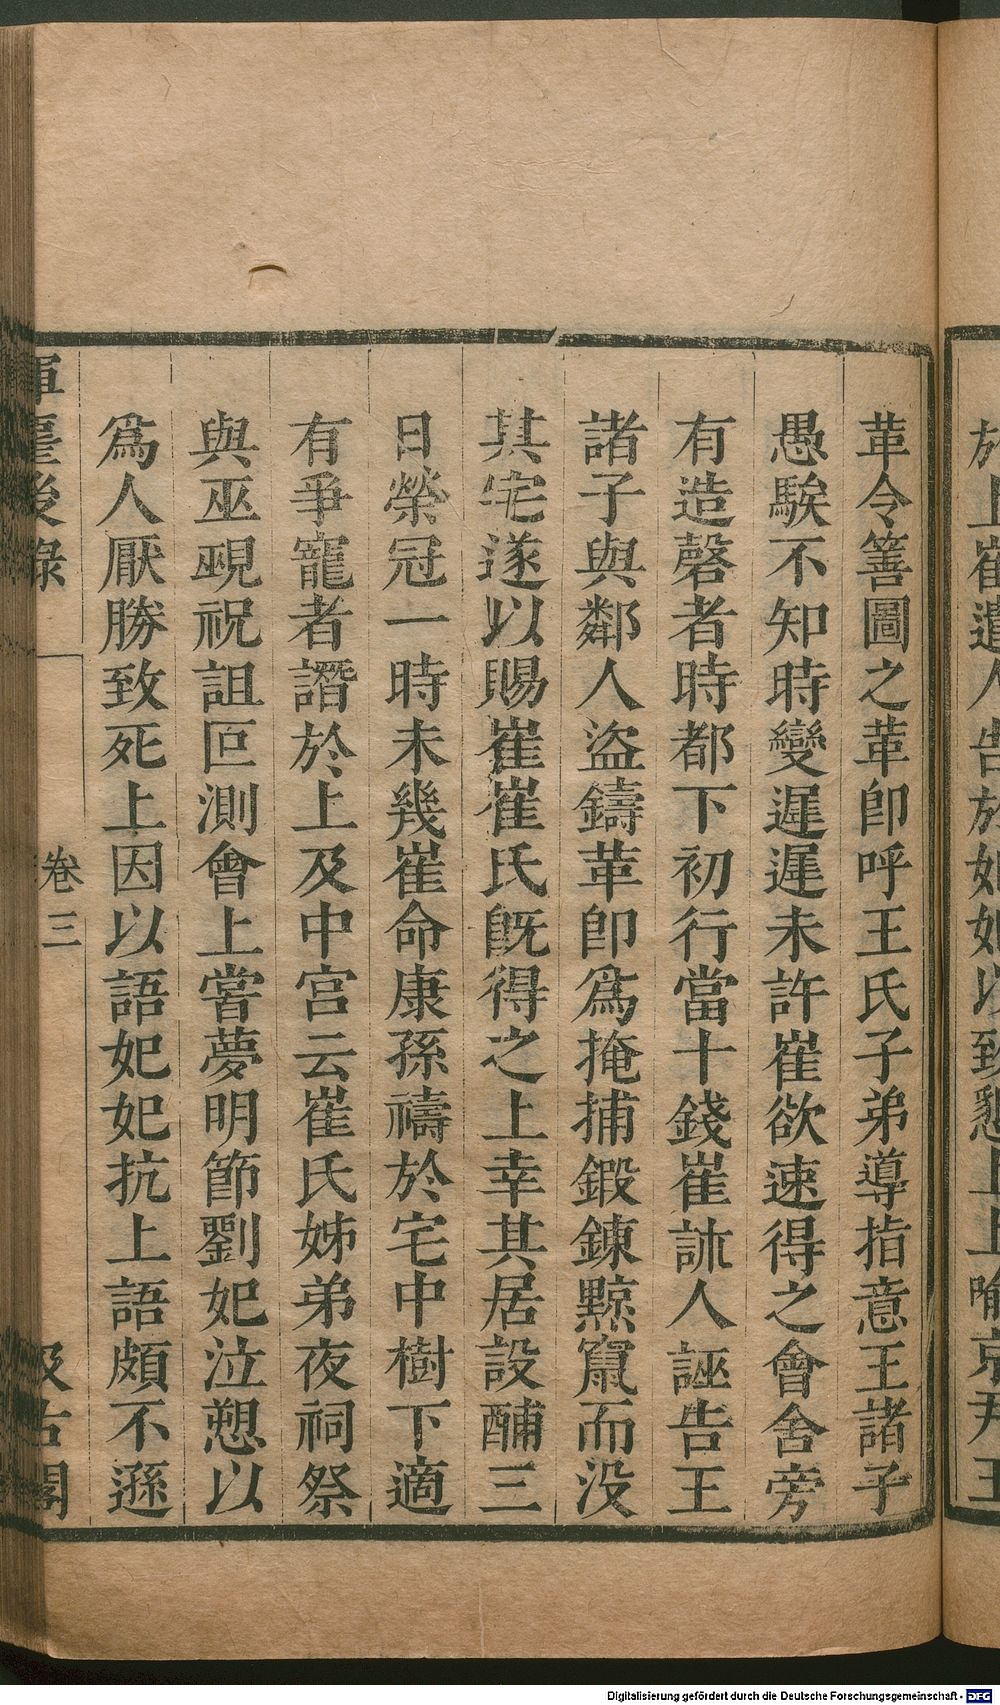 於上崔遣人告於妃妃以致懇上上喻京尹王
革令善圖之革卽呼王氏子弟導指意王諸子
愚騃不知時變遲遲未許崔欲速得之會舍旁
有造磬者時都下初行當十錢崔訹人誣告王
諸子與鄰人盜鑄革卽爲掩捕鍛鍊黥竄而没
其宅遂以賜崔崔氏旣得之上幸其居設酺三
日榮冠一時未幾崔命康孫禱於宅中樹下適
有爭寵者譖於上及中宮云崔氏姊弟夜祠祭
與巫覡祝詛叵測會上嘗夢明節劉妃泣愬以
爲人厭勝致死上因以語妃妃抗上語頗不遜
揮麈後錄
卷三
汲古閣
Digitalisierung gefördert durch die Deutsche Forschungsgemeinschaft - DFG